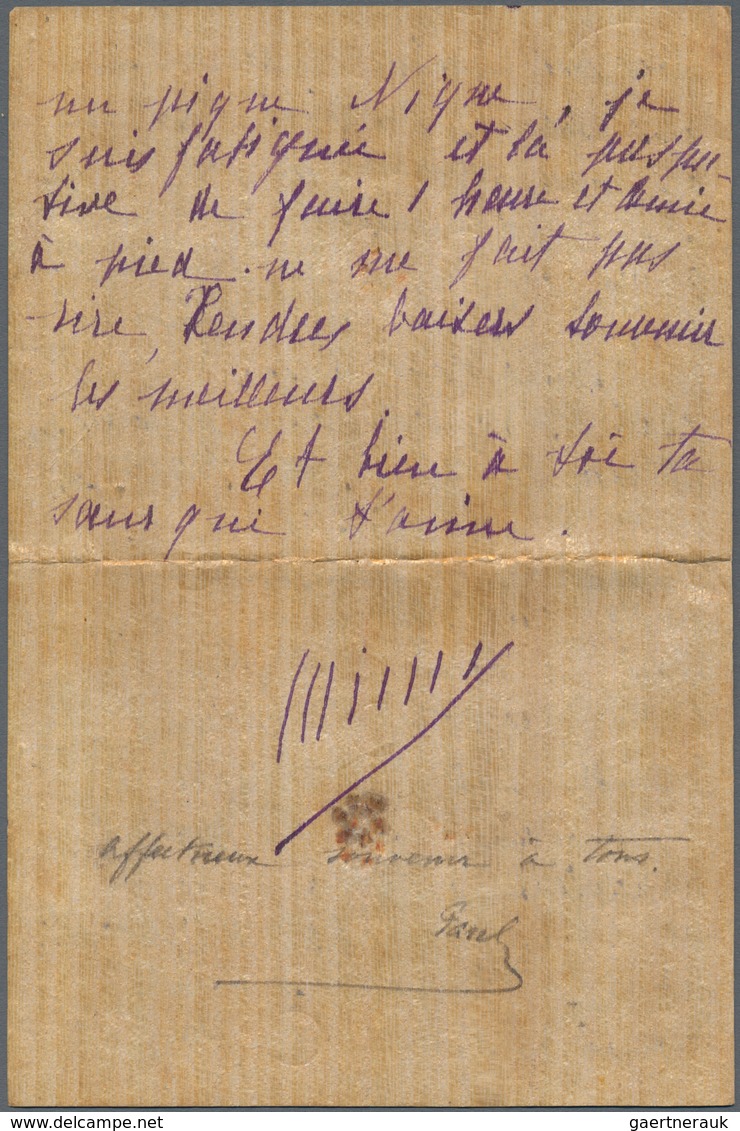 un pique Nique, je
suis fatiguée et la perspec-
tive de faire 1 heure et demie
à pied ne me fait pas
rire, Tendres baisers souvenir
les meilleurs
Et bien à toi ta
sœur qui t'aime.
affectueux souvenir à tous.
Paul
delcampe.net
gaertnerauk